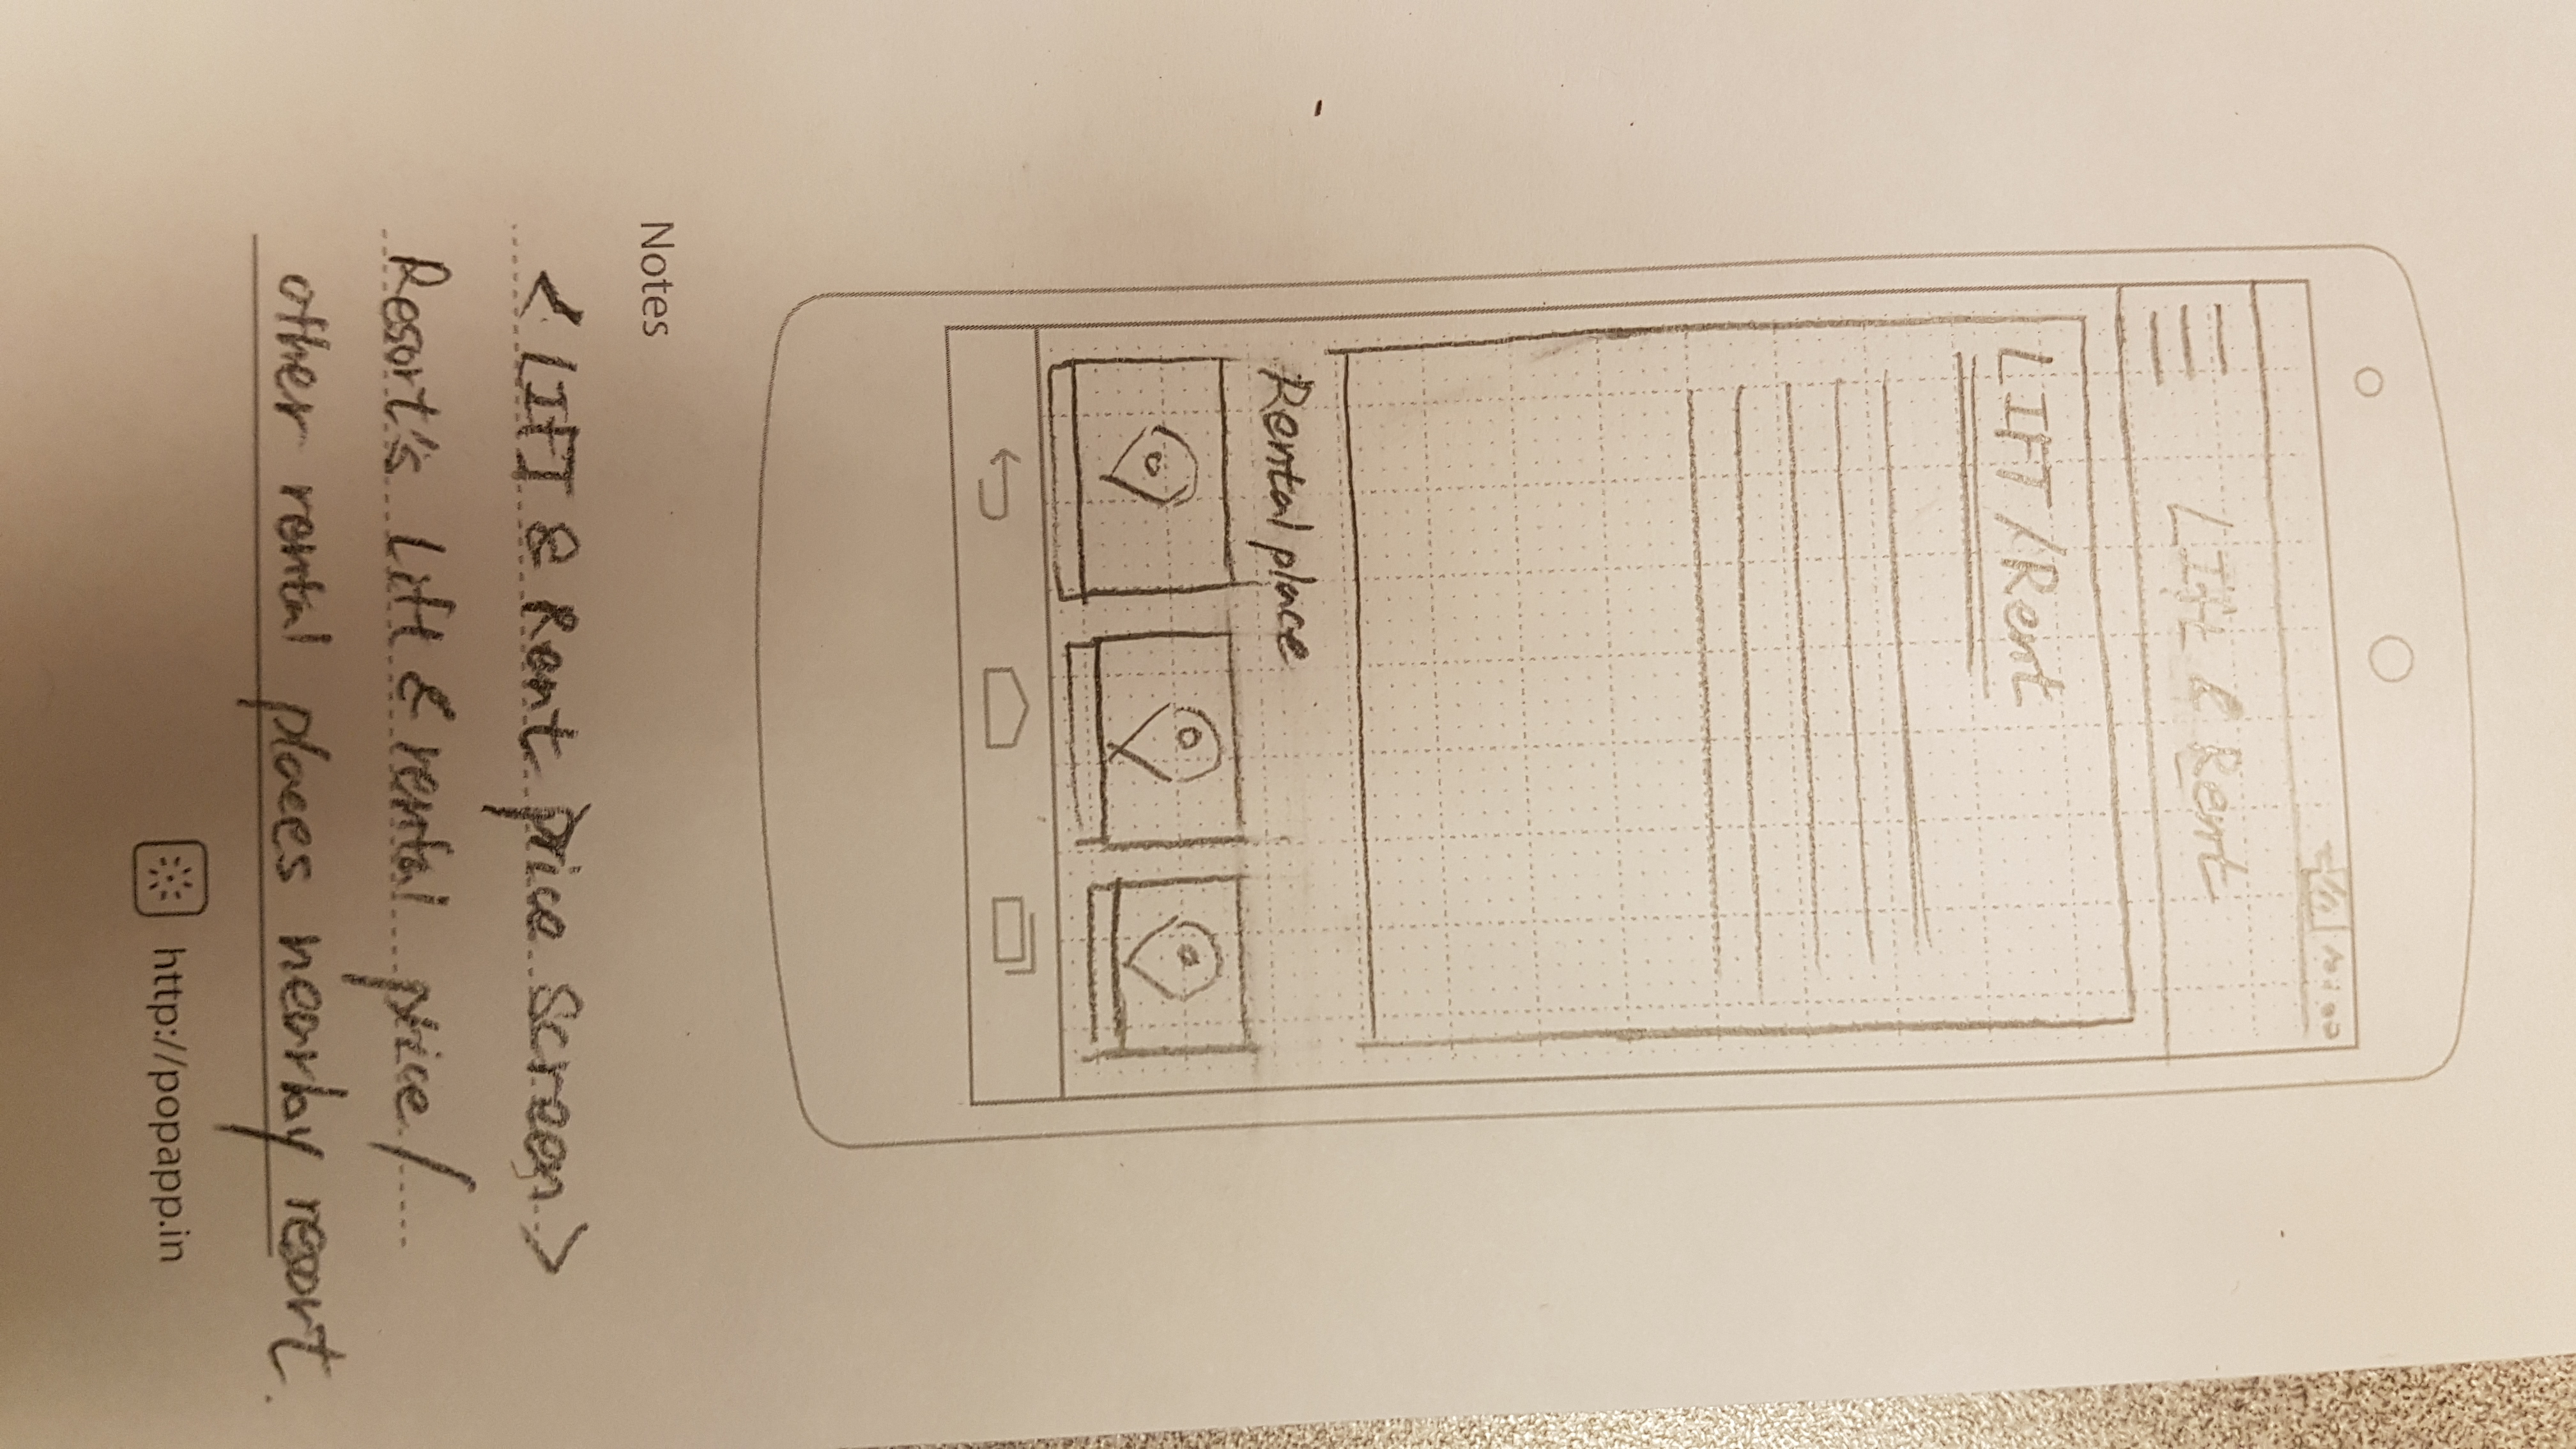 LIft & Rent
LIFT/Rent
Rental place
Notes
< LIFT & Rent price Screen>
Resort's Lift & rental price/
other rental places nearby resort.
http://popapp.in